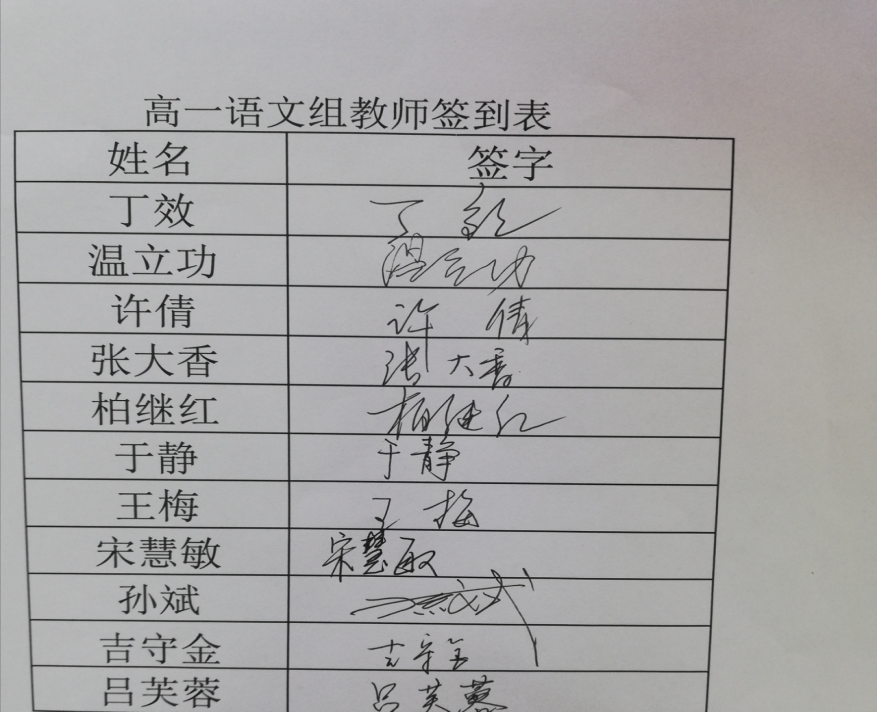 高一语文组教师签到表
姓名 签字
丁效 丁效
温立功 温立功
许倩 许倩
张大香 张大香
柏继红 柏继红
于静 于静
王梅 王梅
宋慧敏 宋慧敏
孙斌 孙斌
吉守金 吉守金
吕芙蓉 吕芙蓉